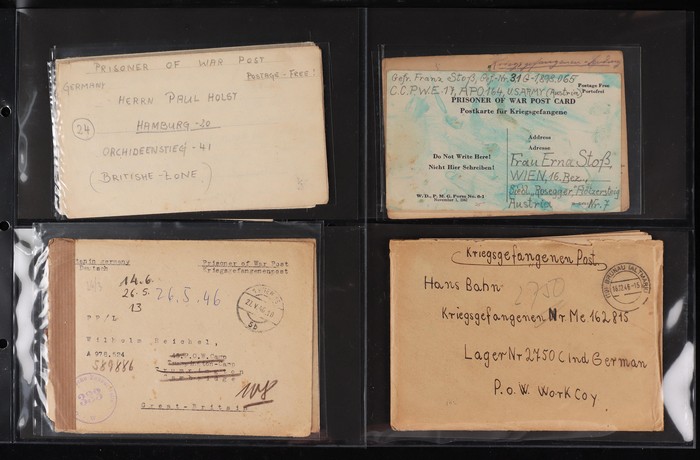 PRISONER OF WAR POST
POSTAGE-FREE!
GERMANY
HERRN PAUL HOLST
24
HAMBURG-20
ORCHIDEENSTIEG-41
(BRITISHE-ZONE)
Gefr. Franz Stoß, Gef.-Nr. 31G-1893065
C.C.P.W.E 17, APO 164, US ARMY (Austria)
Postage Free
Portofrei
PRISONER OF WAR POST CARD
Postkarte für Kriegsgefangene
Address
Adresse
Do Not Write Here!
Nicht Hier Schreiben!
Frau Erna Stoß
WIEN, 16. Bez.,
Austria Nr. 7
W.D., P.M.G. Form No. 6-1
November 1,
in germany
Deutsch
Prisoner of War Post
Kriegsgefangenenpost
14.6.
26.5.
13
26.5.46
PP/L
Wilhelm Reichel,
A 978,884
589886
333
108
Great-Britain
Kriegsgefangenen Post
2750
Hans Bahn
Kriegsgefangenen Nr. Me 162815
Lager Nr 2750 C ind German
P.o.W. Work Coy